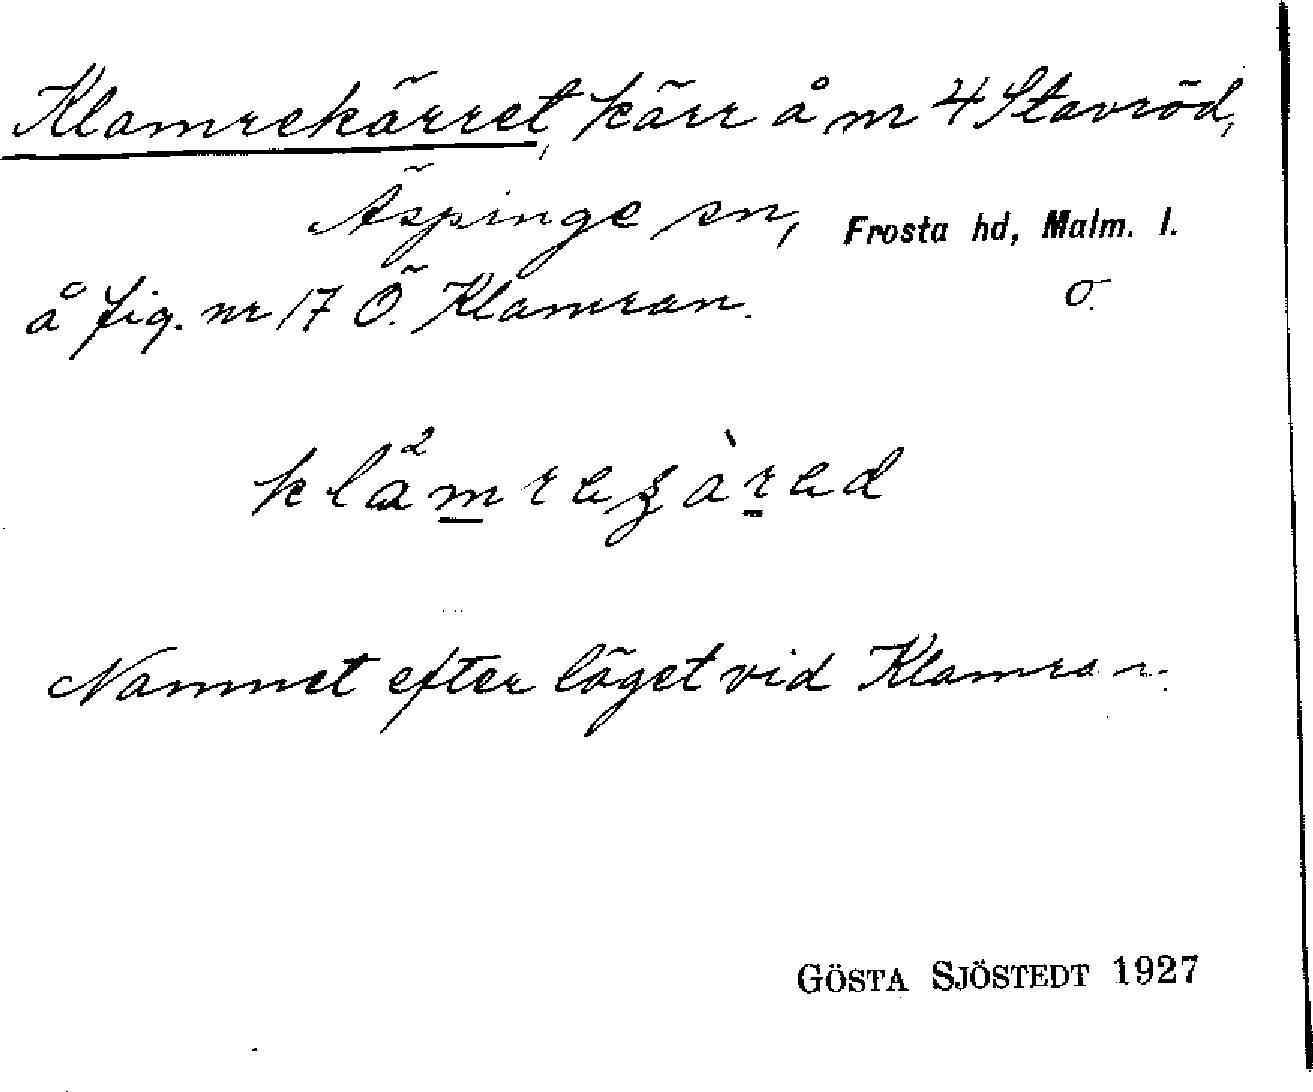 Klamrekärret, kärr å nr 4 Stavröd,
Äspinge sn, Frosta hd, Malm. l.
å fig. nr 17 Ö. Klamran. O.
Namnet efter läget vid Klamran.
GÖSTA SJÖSTEDT 1927